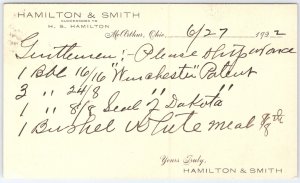 HAMILTON & SMITH
SUCCESSORS TO
H. S. HAMILTON
McArthur, Ohio, 6/27 1922
Gentlemen:- Please ship at once
1 Bbl 16/16 "Winchester" Patent
3 " 24/8
1 " 8/8 Seal "J Dakota"
1 Bushel White meal 8/8th
Yours truly,
HAMILTON & SMITH